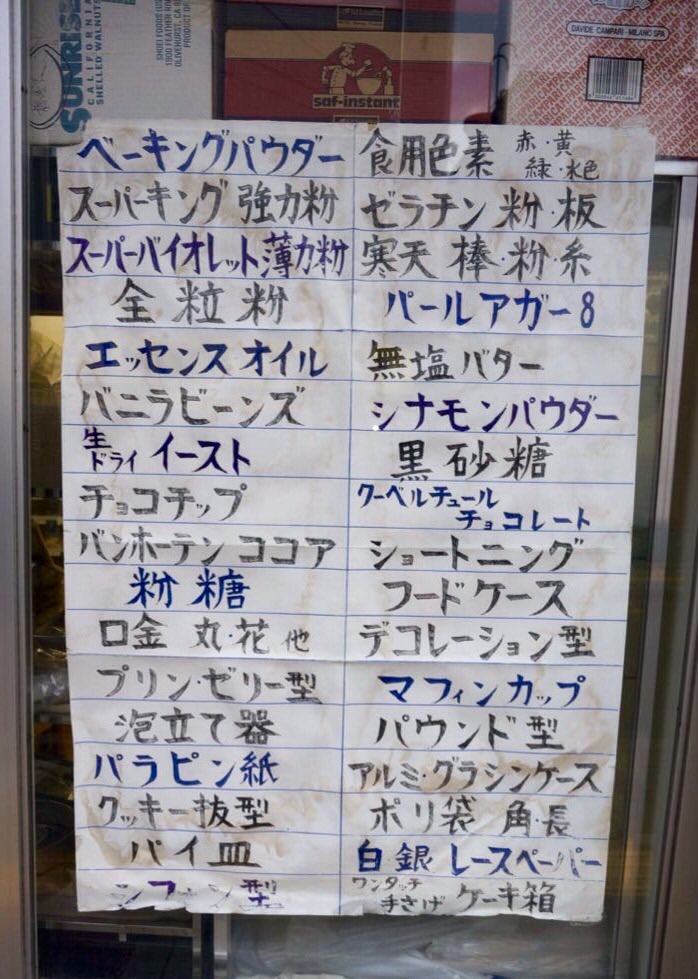 SUNRISE
CALIFORNIA
SHELLED WALNUTS
SHOEI FOODS
1900 FEATHER RIVER
OLIVEHURST, CA
PRODUCT OF
saf-instant
DAVIDE CAMPARI - MILANO SPA
ベーキングパウダー
スーパーキング 強力粉
スーパーバイオレット薄力粉
全粒粉
エッセンスオイル
バニラビーンズ
生ドライ イースト
チョコチップ
バンホーテン ココア
粉糖
口金 丸・花 他
プリン・ゼリー型
泡立て器
パラピン紙
クッキー抜型
パイ皿
シフォン型
食用色素 赤・黄 緑・水色
ゼラチン 粉・板
寒天 棒・粉・糸
パールアガー8
無塩バター
シナモンパウダー
黒砂糖
クーベルチュール
チョコレート
ショートニング
フードケース
デコレーション型
マフィンカップ
パウンド型
アルミ・グラシンケース
ポリ袋 角・長
白 銀 レースペーパー
ワンタッチ手さげ ケーキ箱